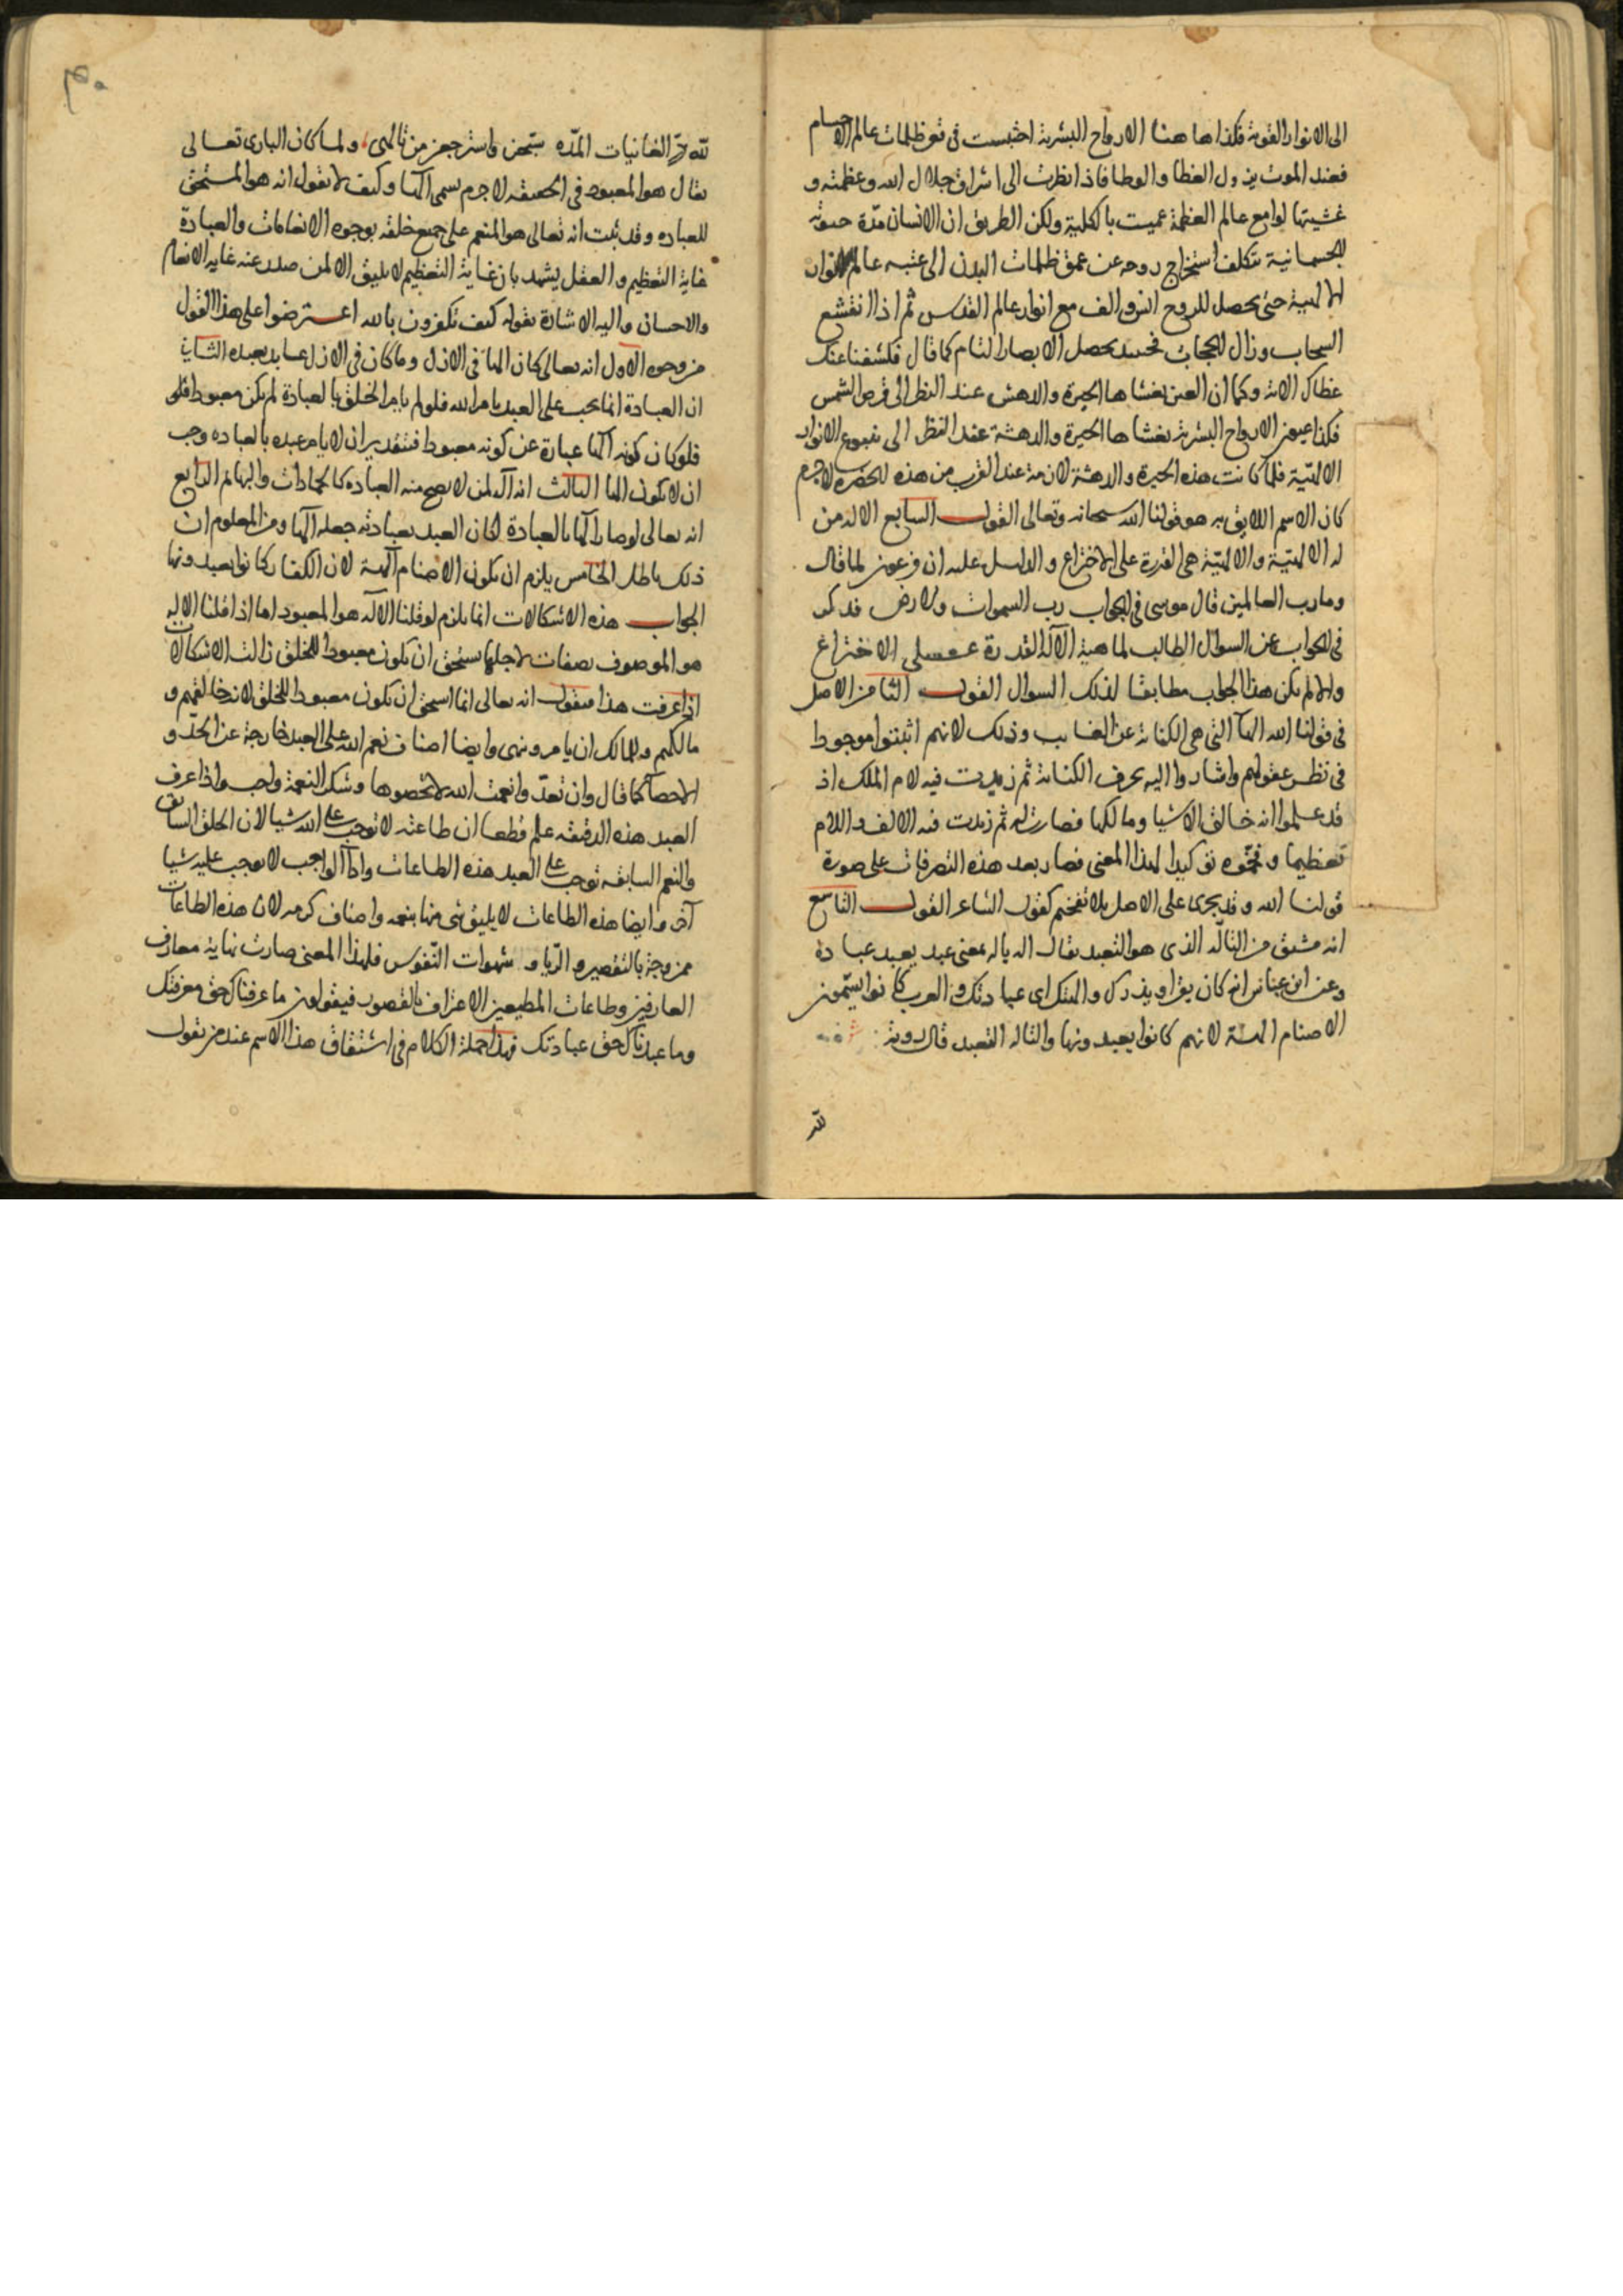 الى الانوار القوية فكذا هاهنا الارواح البشرية احتبست فى قعر ظلمات عالم الاجسام
فعند الموت يزول الغطا والوطا فاذا نظرت الى اشراق جلال الله وعظمته و
غشيتها لوامع عالم العظمة عميت بالكلية ولكن الطريق ان الانسان مدة حيوته
الجسمانية يتكلف استخراج روحه عن عمق ظلمات البدن الى عتبه عالم الانوار
الالهية حتى يحصل للروح انس والف مع انوار عالم القدس ثم اذا انقشع
السحاب وزال الحجاب فحينئذ يحصل الابصار التام كما قال فكشفنا عنك
غطاك الاية وكما ان العين يغشاها الحيرة والدهش عند النظر الى قرص الشمس
فكذا عيون الارواح البشرية يغشاها الحيرة والدهشة عند النظر الى ينبوع الانوار
الالهية فلما كانت هذه الحيرة والدهشة لازمة عند القرب من هذه الحضرة لا جرم
كان الاسم اللايق به هو قولنا الله سبحانه وتعالى القول السابع الاله من
له الالهية والالهية هى القدرة على الاختراع والدليل عليه ان فرعون لما قال
وما رب العالمين قال موسى فى الجواب رب السموات والارض فذكر
فى الجواب عن السوال الطالب لماهية الاله القدرة على الاختراع
والا لم يكن هذا الجواب مطابقا لذلك السوال القول الثامن الاصل
فى قولنا الله الها التى هى الكناية عن الغايب وذلك لانهم اثبتوا موجودا
فى نظر عقولهم واشاروا اليه بحرف الكناية ثم زيدت فيه لام الملك اذ
قد علموا انه خالق الاشيا ومالكها فصارت له ثم زيدت فيه الالف واللام
تعظيما وفخموه توكيدا لهذا المعنى فصار بعد هذه التصرفات على صورة
قولنا الله وقد يجرى على الاصل بلا تفخيم كقول الشاعر القول التاسع
انه مشتق من التاله الذى هو التعبد يقال اله ياله بمعنى عبد يعبد عبادة
وعن ابن عباس انه كان يقرا ويذرك والهتك اى عبادتك والعرب كانوا يسمون
الاصنام الهة لانهم كانوا يعبدونها والتاله التعبد قال روبة
لله
لله در الغانيات المده سبحن واسترجعن من تالهى ولما كان البارى تعالى
يقال هو المعبود فى الحقيقه لا جرم سمى الها وكيف لا يقول انه هو المستحق
للعباده وقد ثبت انه تعالى هو المنعم على جميع خلقه بوجوه الانعامات والعبادة
غاية التعظيم والعقل يشهد بان غاية التعظيم لا يليق الا لمن صدر عنه غاية الانعام
والاحسان واليه الاشارة بقوله كيف تكفرون بالله اعترضوا على هذا القول
من وجوه الاول انه تعالى كان الها فى الازل وما كان فى الازل عابد يعبده الثانى
ان العبادة انما يجب على العبد بامر الله فلو لم يامر الخلق بالعبادة لم يكن معبودا فلو
فلو كان كونه الها عبارة عن كونه معبودا فتقدير ان لا يامر عبده بالعباده وجب
ان لا يكون الها الثالث انه اله لمن لا يصح منه العباده كالجمادات والبهايم الرابع
انه تعالى لو صار الها بالعبادة لكان العبد بعبادته جعله الها ومن المعلوم ان
ذلك باطل الخامس يلزم ان يكون الاصنام الهة لان الكفار كانوا يعبدونها
الجواب هذه الاشكالات انما يلزم لو قلنا الاله هو المعبود اما اذا قلنا الاله
هو الموصوف بصفات لاجلها يستحق ان يكون معبودا للخلق زالت الاشكالات
اذا عرفت هذا فنقول انه تعالى انما استحق ان يكون معبودا للخلق لانه خالقهم و
مالكهم وللمالك ان يامر وينهى وايضا اصناف نعم الله على العبد خارجة عن الحد و
الاحصآ كما قال وان تعدوا نعمت الله لا تحصوها وشكر النعمة واجب واذا عرف
العبد هذه الدقيقه علم قطعا ان طاعته لا توجب على الله شيا لان الخلق السابق
والنعم السابقه توجب على العبد هذه الطاعات واداآ الواجب لا يوجب عليه شيا
آخر وايضا هذه الطاعات لا يليق شى منها بنعمه واصناف كرمه لان هذه الطاعات
ممزوجة بالتقصير والريا و شهوات النفوس فلهذا المعنى صارت نهاية معارف
العارفين وطاعات المطيعين الاعتراف بالقصور فيقولون ما عرفناك حق معرفتك
وما عبدناك حق عبادتك فهذا جملة الكلام فى اشتقاق هذا الاسم عند من يقول